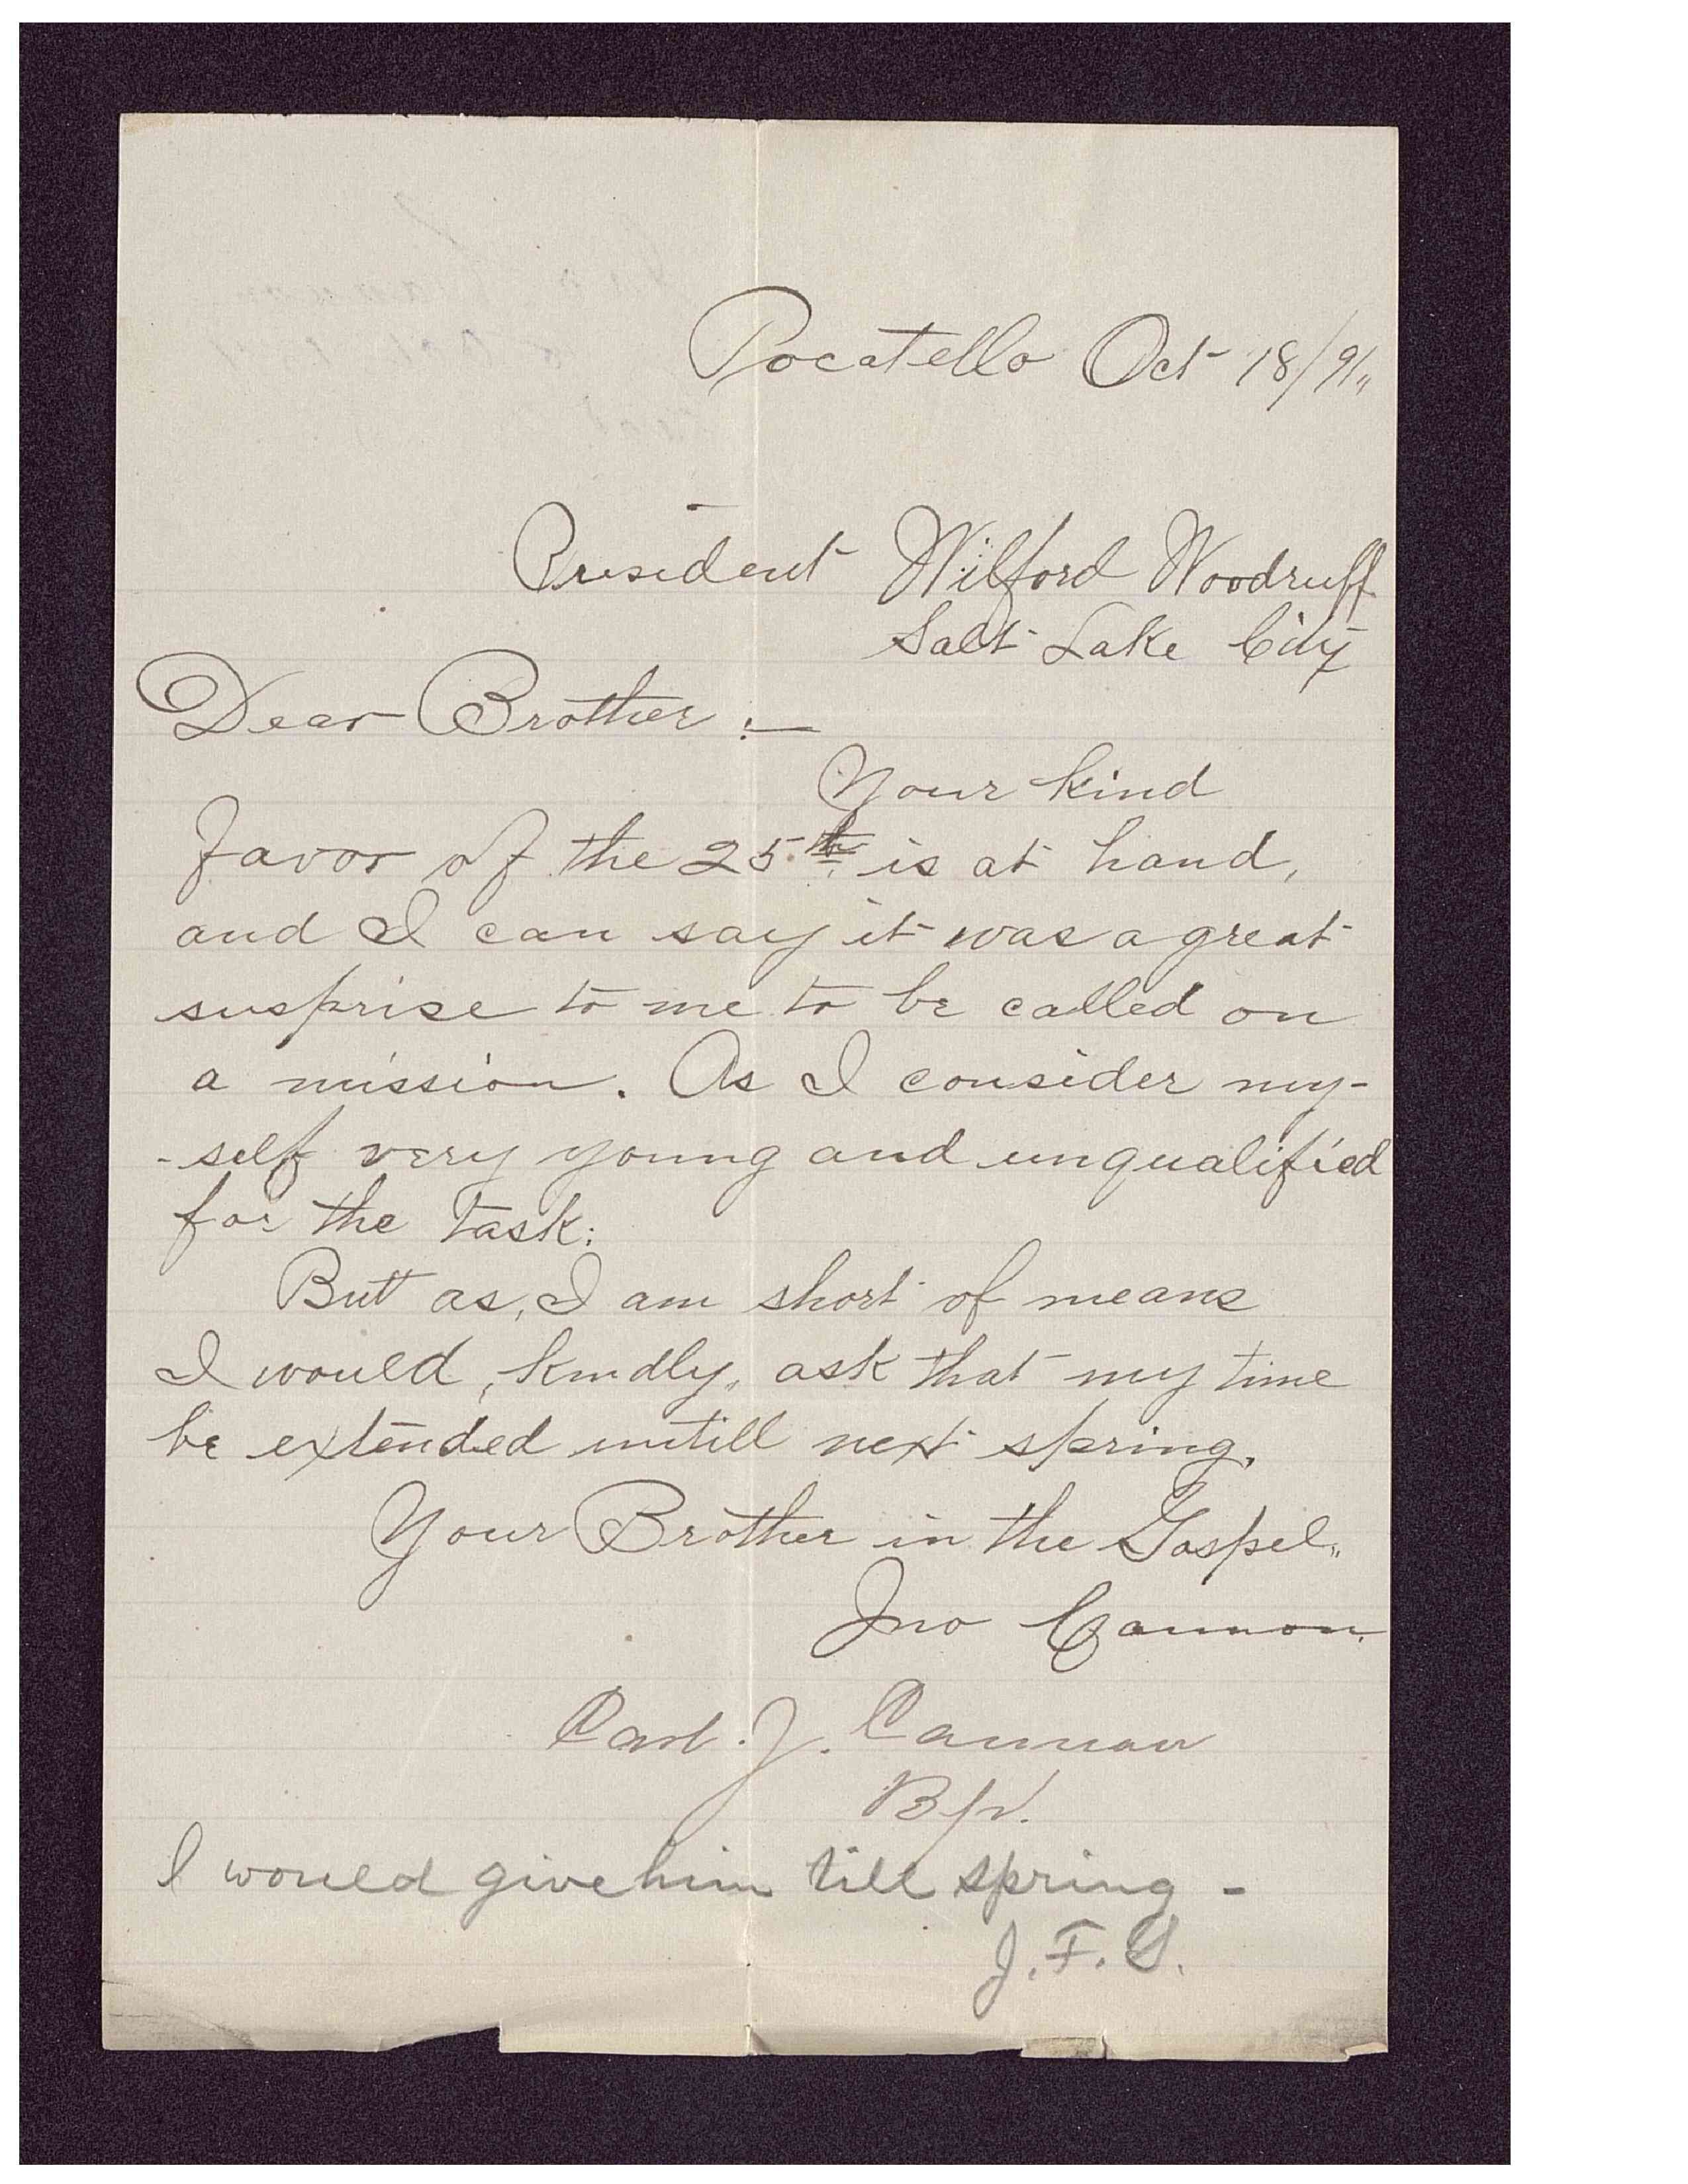 Pocatello Oct 18/91,,
President Wilford Woodruff
Salt Lake City
Dear Brother :—
Your kind
favor of the 25.th is at hand,
and I can say it was a great
susprise to me to be called on
a mission. As I consider my-
-self very young and unqualified
for the task:
But as, I am short of means
I would, kindly, ask that my time
be extended untill next spring.
Your Brother in the Gospel,,
Jno Cannon.
Carl. J. Cannon
Bp.
I would give him till spring -
J. F. S.